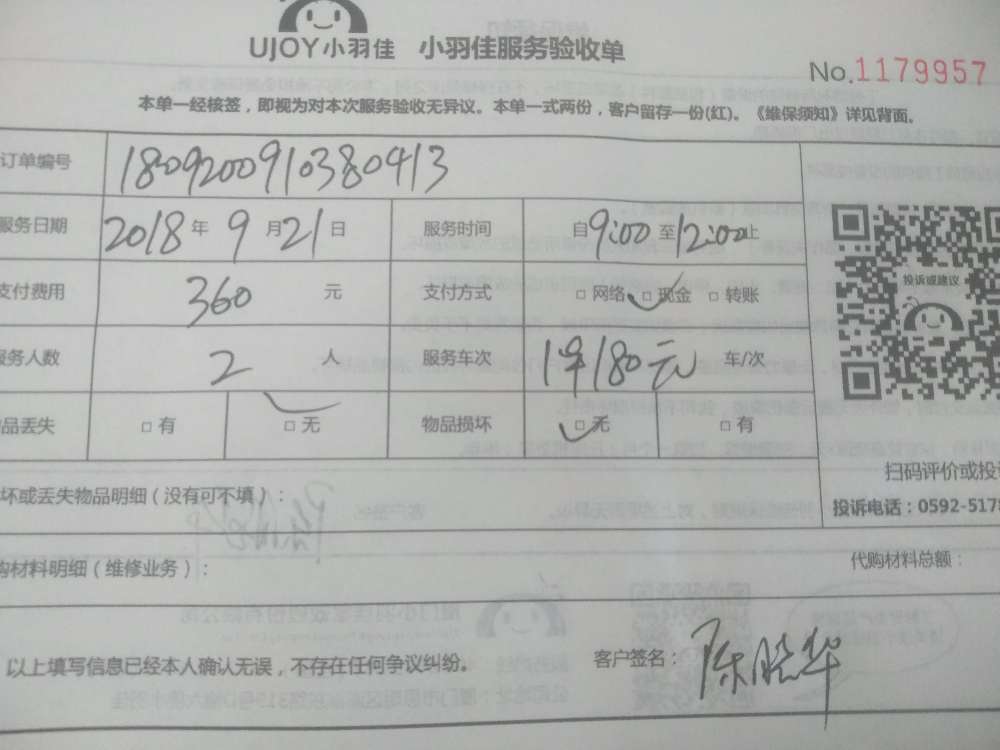 UJOY小羽佳 小羽佳服务验收单
No.1179957
本单一经核签，即视为对本次服务验收无异议。本单一式两份，客户留存一份(红)。《维保须知》详见背面。
订单编号 1809200910380413
服务日期 2018年9月21日 服务时间 自9:00至12:00止
支付费用 360元 支付方式 □网络 □现金 □转账
服务人数 2人 服务车次 车/次
品丢失 □有 □无 物品损坏 □无 □有
投诉或建议
扫码评价或投
坏或丢失物品明细（没有可不填）：
投诉电话：0592-517
购材料明细（维修业务）：
代购材料总额：
以上填写信息已经本人确认无误，不存在任何争议纠纷。
客户签名：陈晓华